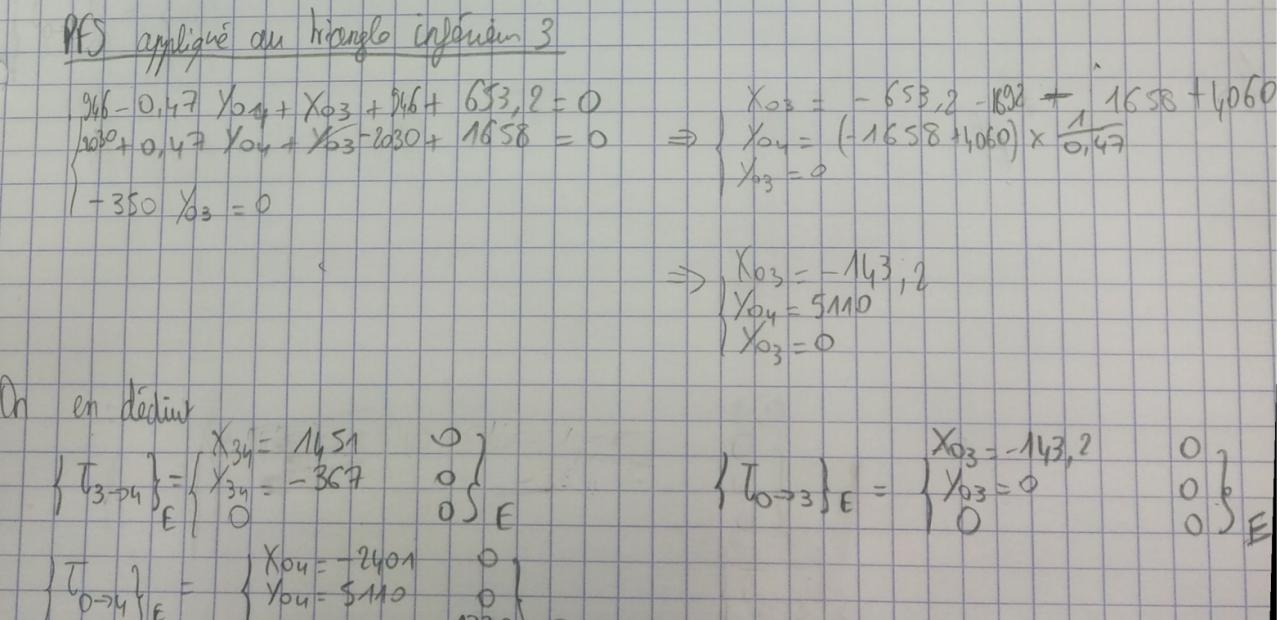 PFS appliqué au triangle inférieur 3
946 - 0,47 Y04 + X03 + 946 + 653,2 = 0
2030 + 0,47 Y04 + Y03 - 2030 + 1658 = 0
- 350 Y03 = 0
X03 = - 653,2 - 1892 - 1658 + 4060
⇒ Y04 = (-1658 + 4060) × 1/0,47
Y03 = 0
⇒ X03 = -143,2
Y04 = 5110
Y03 = 0
On en déduit
{T3→4}E = { X34 = 1451 0
Y34 = -367 0
0 0 }E
{T0→3}E = { X03 = -143,2 0
Y03 = 0 0
0 0 }E
{T0→4}E = { X04 = -2401 0
Y04 = 5110 0